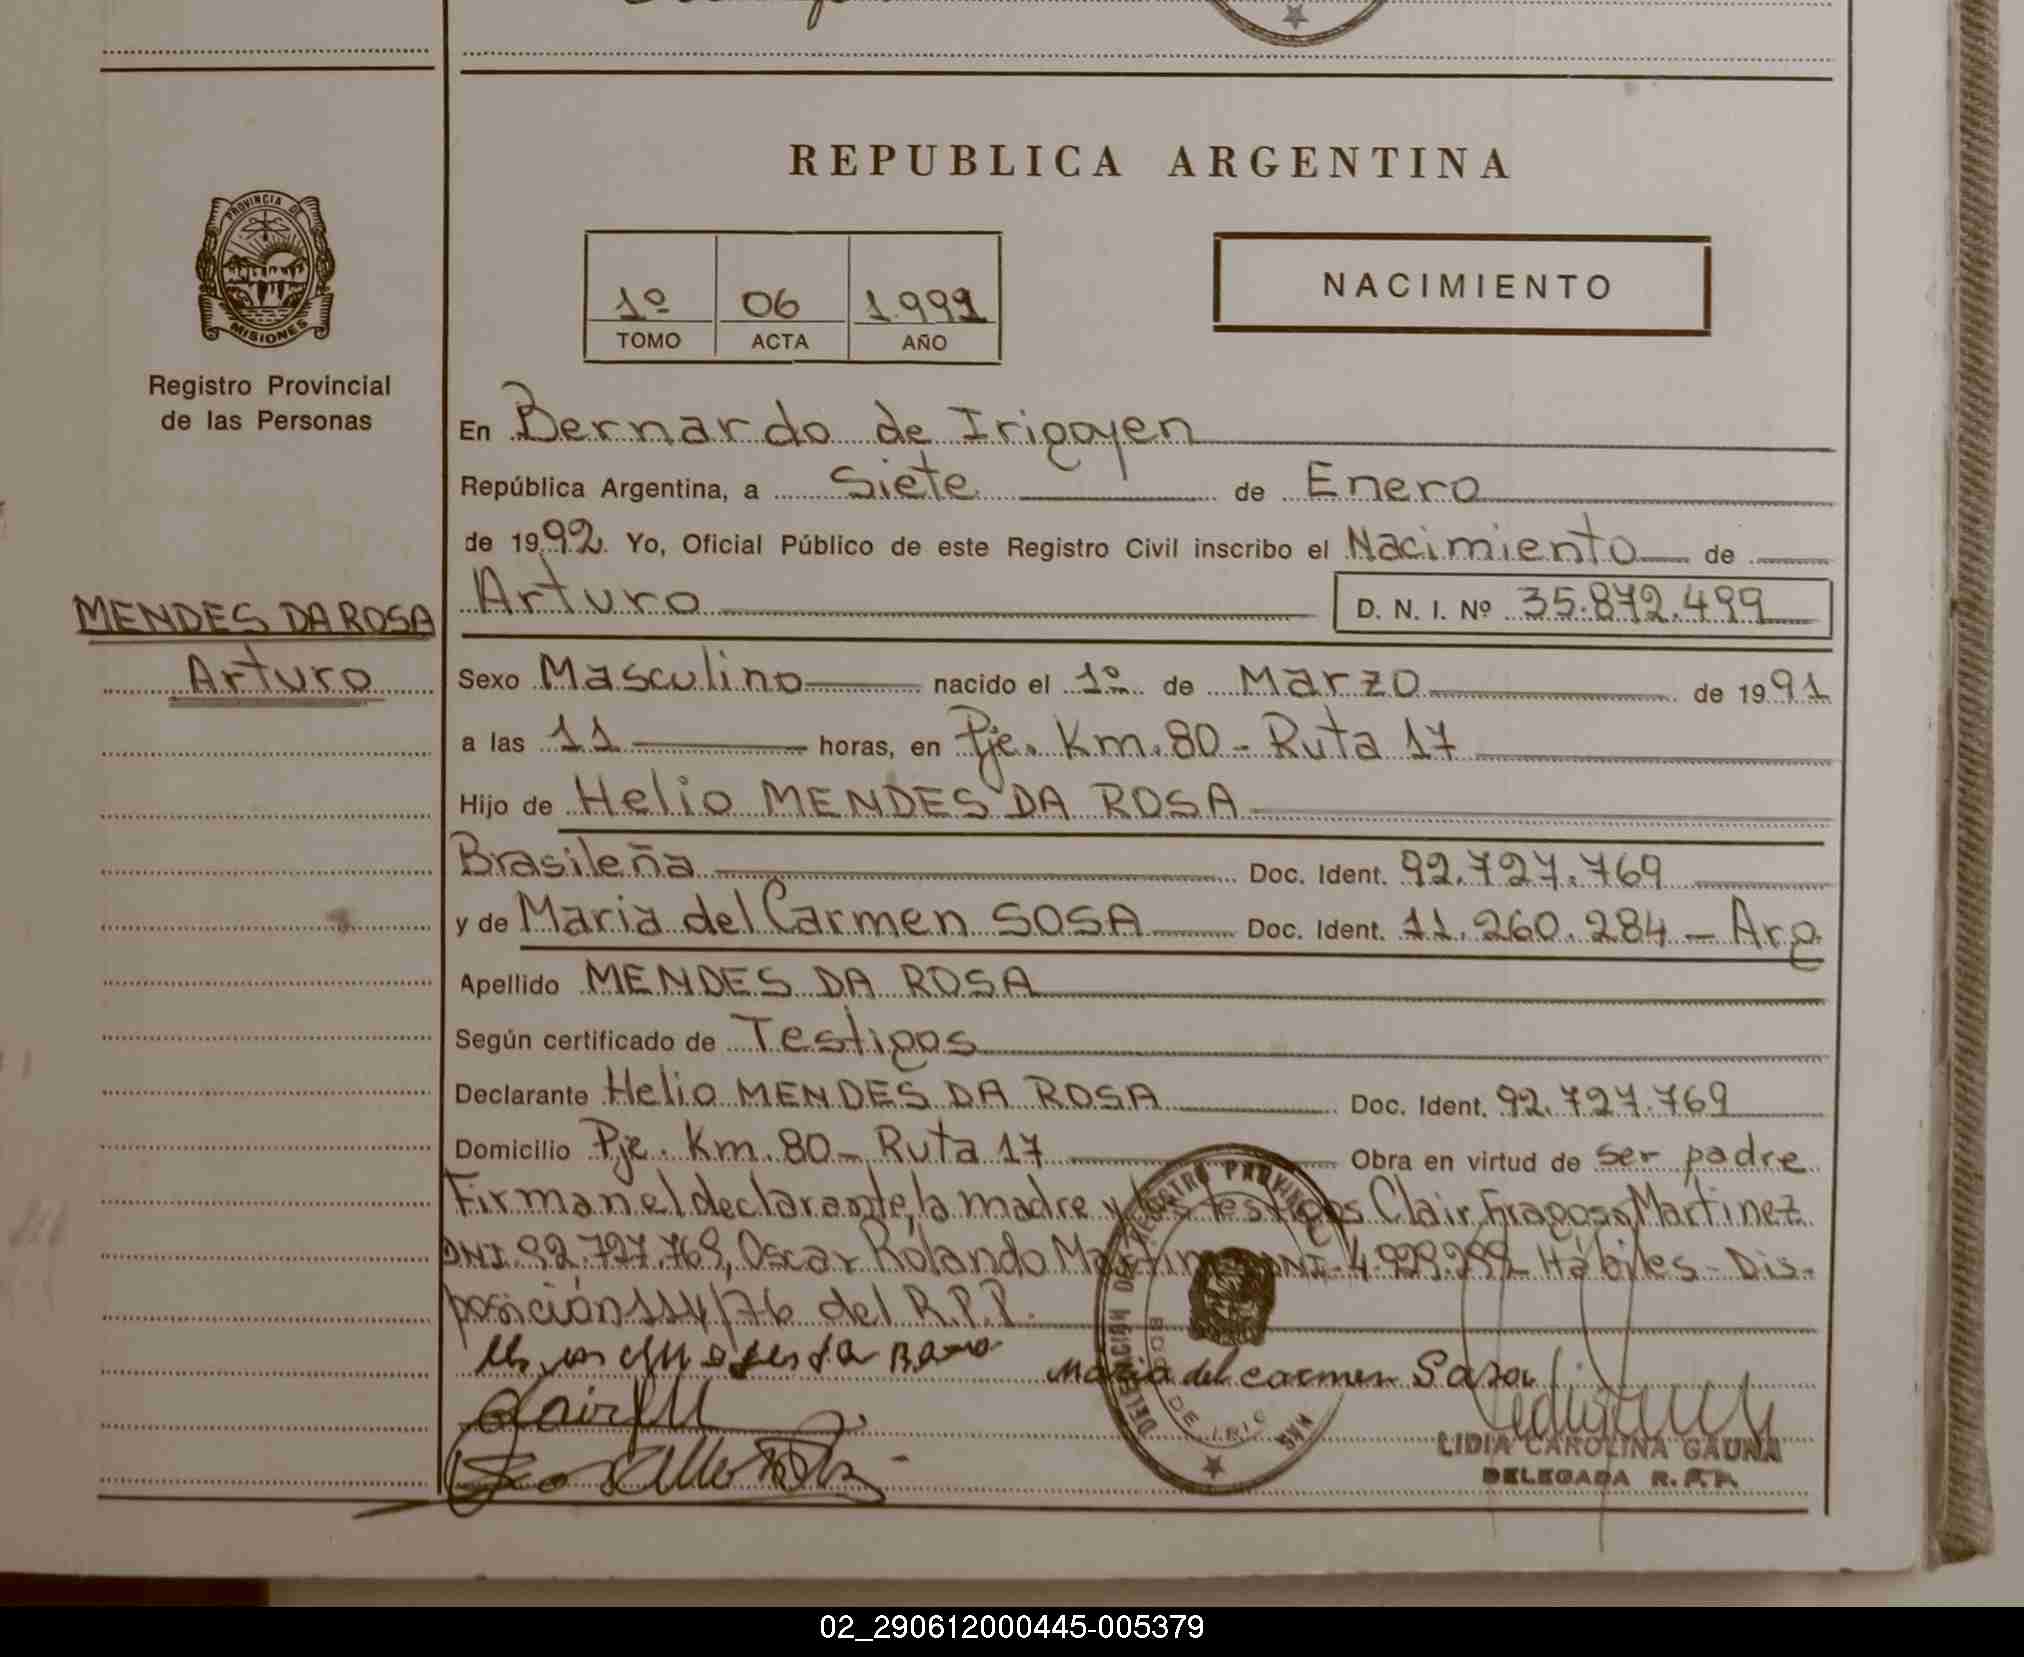 REPUBLICA ARGENTINA
PROVINCIA DE
MISIONES
Registro Provincial
de las Personas
1º 06 1.991
TOMO ACTA AÑO
NACIMIENTO
En Bernardo de Irigoyen
República Argentina, a Siete de Enero
de 1992. Yo, Oficial Público de este Registro Civil inscribo el Nacimiento de
MENDES DA ROSA
Arturo
Arturo D. N. I. Nº 35.872.499
Sexo Masculino nacido el 1º de Marzo de 1991
a las 11 horas, en Pje. Km. 80 - Ruta 17
Hijo de Helio MENDES DA ROSA
Brasileña Doc. Ident. 92.727.769
y de Maria del Carmen SOSA Doc. Ident. 11.260.284 - Arg
Apellido MENDES DA ROSA
Según certificado de Testigos
Declarante Helio MENDES DA ROSA Doc. Ident. 92.727.769
Domicilio Pje. Km. 80 - Ruta 17 Obra en virtud de ser padre
Firman el declarante, la madre y los testigos Clair Fragoso Martinez
DNI. 92.727.769, Oscar Rolando DNI. Hábiles - Dis-
posición 114/76 del R.P.P.
Maria del Carmen Sosa
LIDIA CAROLINA GAUNA
DELEGADA R.P.P.
02_290612000445-005379